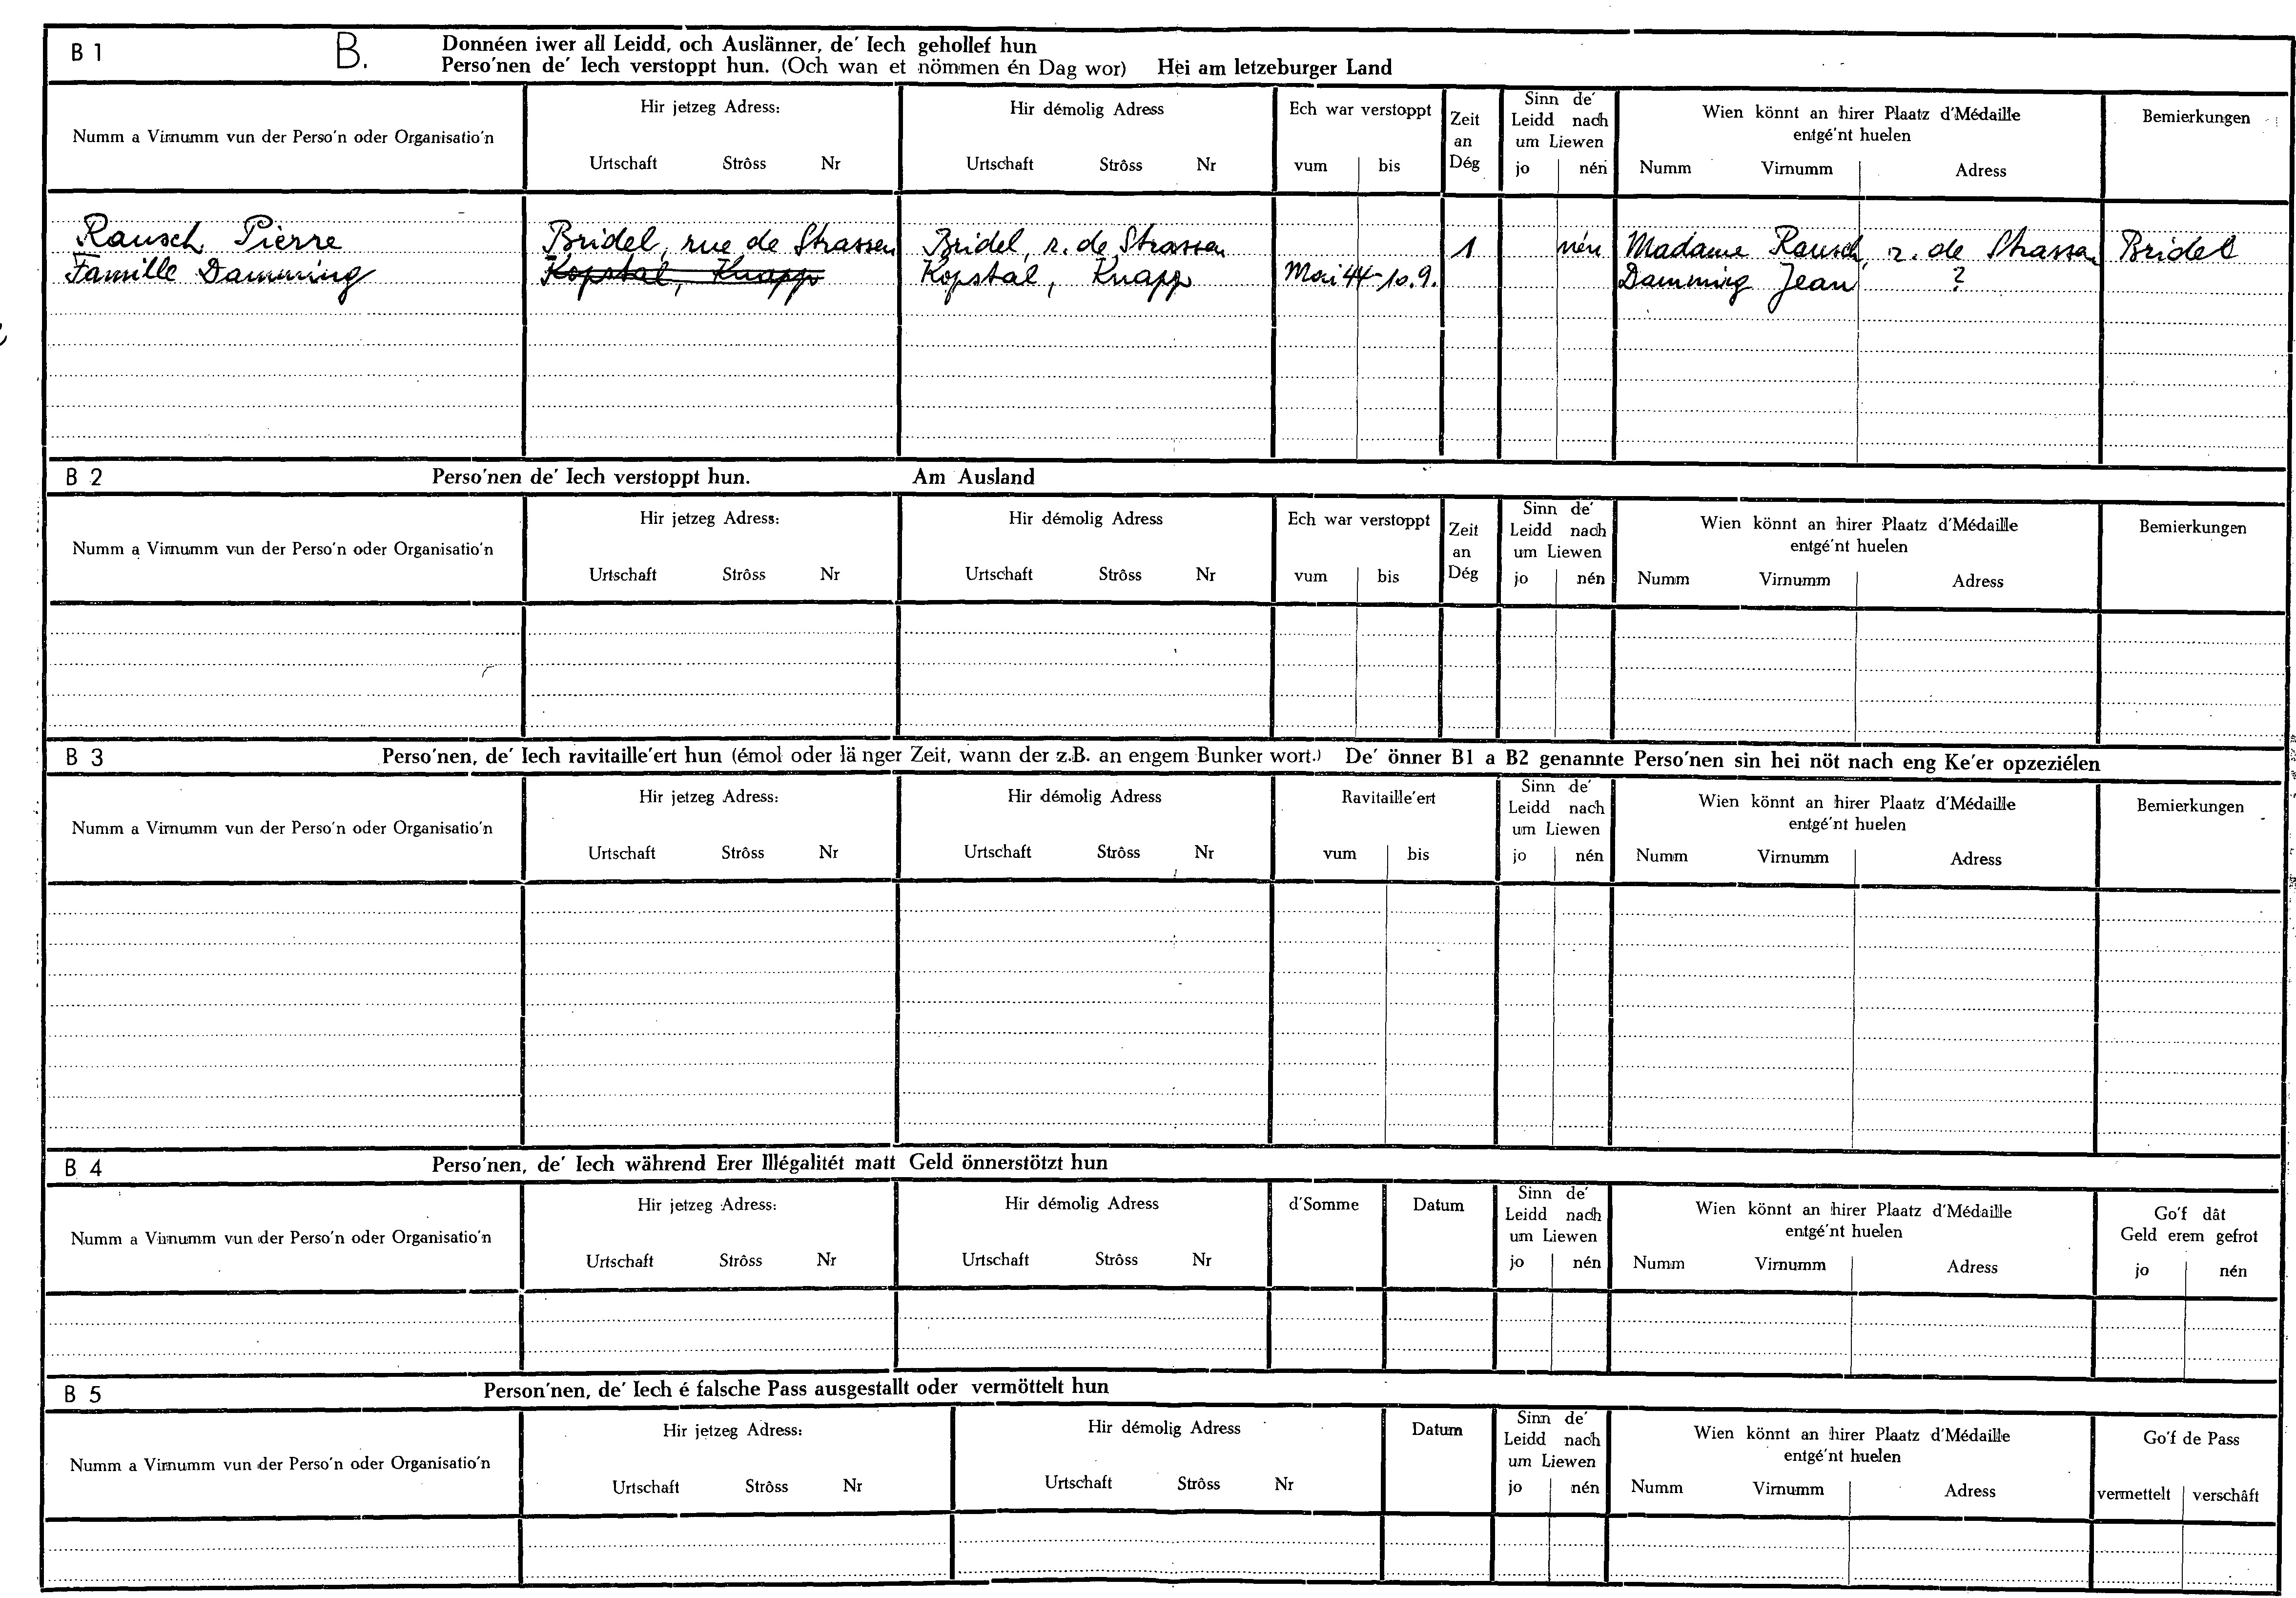 B 1 B. Donnéen iwer all Leidd, och Auslänner, de' Iech gehollef hun
Perso'nen de' Iech verstoppt hun. (Och wan et nömmen én Dag wor) Hei am letzeburger Land
Numm a Virnumm vun der Perso'n oder Organisatio'n
Hir jetzeg Adress:
Urtschaft Strôss Nr
Hir démolig Adress
Urtschaft Strôss Nr
Ech war verstoppt
vum bis
Zeit
an
Dég
Sinn de'
Leidd nach
um Liewen
jo nén
Wien könnt an hirer Plaatz d'Médaille
entgé'nt huelen
Numm Virnumm Adress
Bemierkungen
Rausch Pierre Bridel, rue de Strassen Bridel, r. de Strassen 1 nén Madame Rausch, r. de Strassen Bridel
Famille Damming Kopstal, Knapp Kopstal, Knapp Mai 44 - 10.9. Damming Jean ?
B 2 Perso'nen de' Iech verstoppt hun. Am Ausland
Numm a Virnumm vun der Perso'n oder Organisatio'n
Hir jetzeg Adress:
Urtschaft Strôss Nr
Hir démolig Adress
Urtschaft Strôss Nr
Ech war verstoppt
vum bis
Zeit
an
Dég
Sinn de'
Leidd nach
um Liewen
jo nén
Wien könnt an hirer Plaatz d'Médaille
entgé'nt huelen
Numm Virnumm Adress
Bemierkungen
B 3 Perso'nen, de' Iech ravitaille'ert hun (émol oder länger Zeit, wann der z.B. an engem Bunker wort.) De' önner B1 a B2 genannte Perso'nen sin hei nöt nach eng Ke'er opzeziélen
Numm a Virnumm vun der Perso'n oder Organisatio'n
Hir jetzeg Adress:
Urtschaft Strôss Nr
Hir démolig Adress
Urtschaft Strôss Nr
Ravitaille'ert
vum bis
Sinn de'
Leidd nach
um Liewen
jo nén
Wien könnt an hirer Plaatz d'Médaille
entgé'nt huelen
Numm Virnumm Adress
Bemierkungen
B 4 Perso'nen, de' Iech während Erer Illégalitét matt Geld önnerstötzt hun
Numm a Virnumm vun der Perso'n oder Organisatio'n
Hir jetzeg Adress:
Urtschaft Strôss Nr
Hir démolig Adress
Urtschaft Strôss Nr
d'Somme
Datum
Sinn de'
Leidd nach
um Liewen
jo nén
Wien könnt an hirer Plaatz d'Médaille
entgé'nt huelen
Numm Virnumm Adress
Go'f dât
Geld erem gefrot
jo nén
B 5 Person'nen, de' Iech é falsche Pass ausgestallt oder vermöttelt hun
Numm a Virnumm vun der Perso'n oder Organisatio'n
Hir jetzeg Adress:
Urtschaft Strôss Nr
Hir démolig Adress
Urtschaft Strôss Nr
Datum
Sinn de'
Leidd nach
um Liewen
jo nén
Wien könnt an hirer Plaatz d'Médaille
entgé'nt huelen
Numm Virnumm Adress
Go'f de Pass
vermettelt verschâft